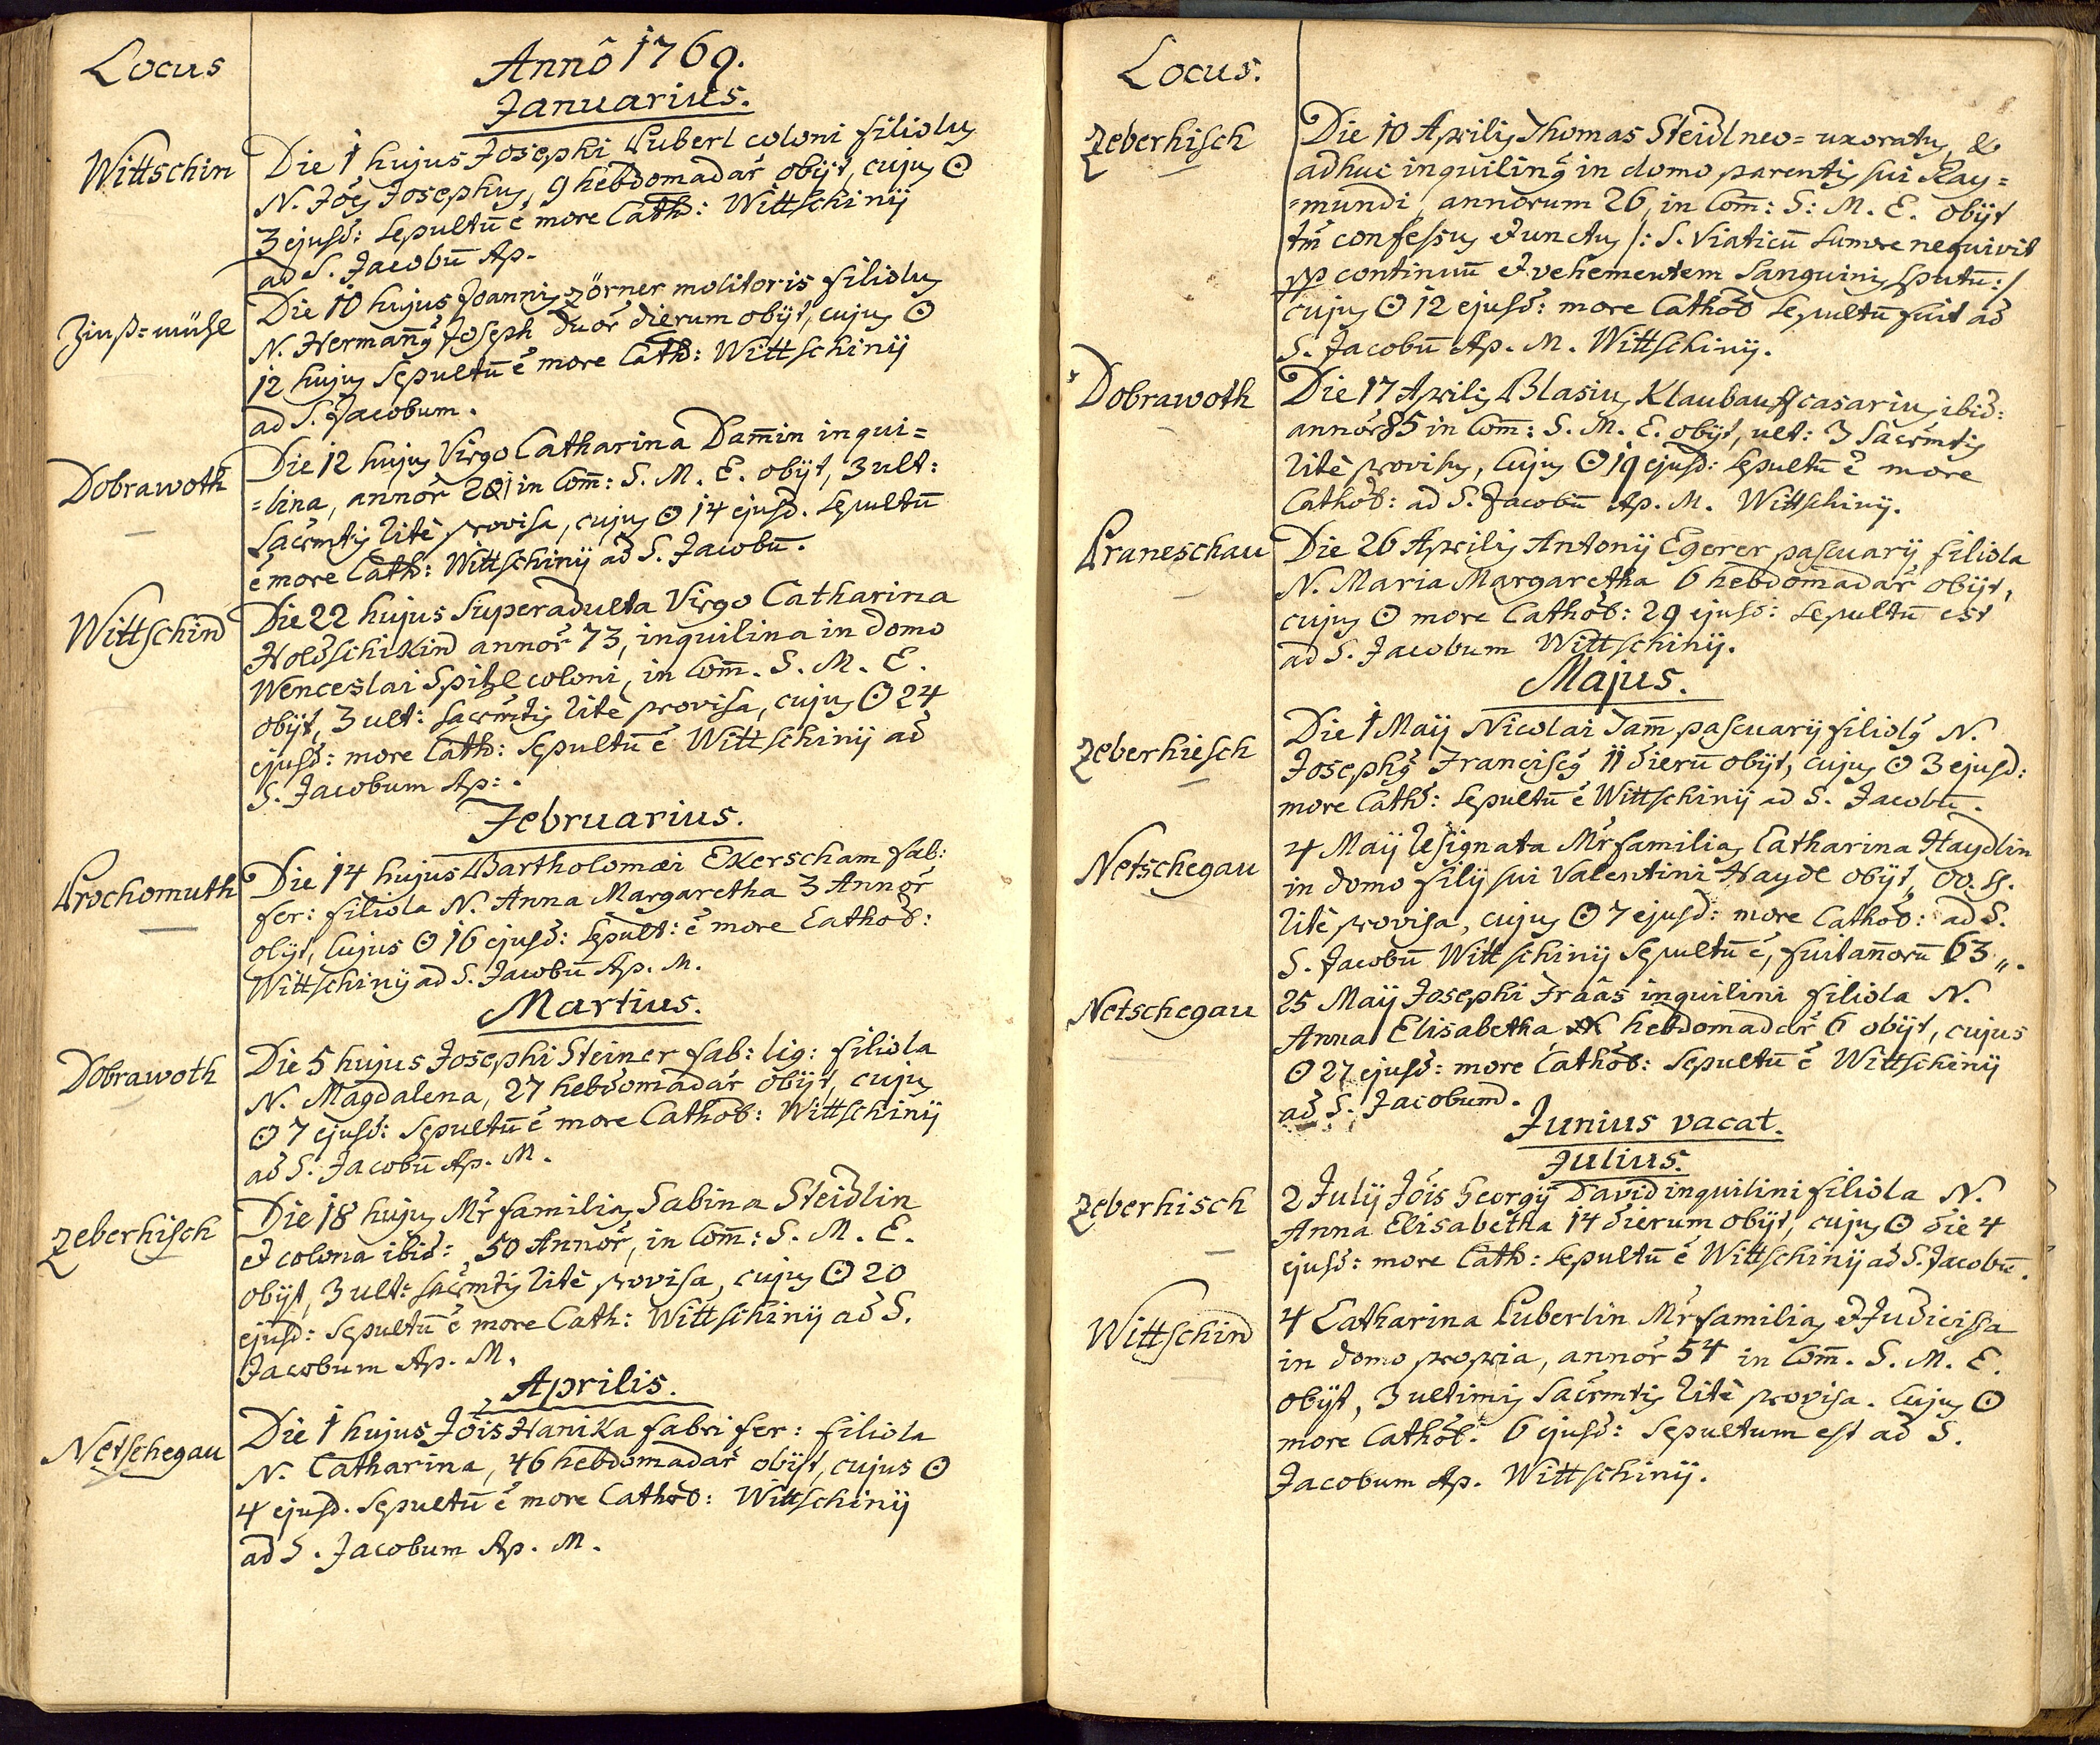 Locus
Annô 1769.
Januarius.
Wittschin
Die 1 hujus Josephi Puberl coloni filiolus
N. Jöes Josephus, 9 hebdomadar̃ obijt, cujus ☉
3 ejusd: Sepultū ẽ more Cath: Wittschinij
ad S. Jacobū Ap.
Zinß=mühl
Die 10 hujus Joannis Zörner molitoris filiolus
N. Hermañus Joseph duor̃ dierum obijt, cujus ☉
12 hujus Sepultū ẽ more Cath: Wittschinij
ad S. Jacobum.
Dobrawoth
Die 12 hujus Virgo Catharina Dam̄in inqui=
=lina, annor̃ in Com̄: S. M. E. obijt, 3 ult:
Sacr̃mtis ritè provisa, cujus ☉ 14 ejusd. Sepultū
ẽ more Cath: Wittschinij ad S. Jacobū.
Wittschin
Die 22 hujus Superadulta Virgo Catharina
Holdschikin annor̃ 73, inquilina in domo
Wenceslai Spitzl coloni, in Com̄. S. M. E.
obijt, 3 ult: Sacr̃mtis ritè provisa, cujus ☉ 24
ejusd: more Cath: Sepultū ẽ Wittschinij ad
S. Jacobum Ap:.
Februarius.
Prochomuth
Die 14 hujus Bartholomæi Ekerscham fab:
fer: filiola N. Anna Margaretha 3 Annor̃
obijt, Cujus ☉ 16 ejusd: Sepult: ẽ more Cathol:
Wittschinij ad S. Jacobū Ap. M.
Martius.
Dobrawoth
Die 5 hujus Josephi Steiner fab: lig: filiola
N. Magdalena, 27 hebdomadar̃ obijt, cujus
☉ 7 ejusd: Sepultū ẽ more Cathol: Wittschinij
ad S. Jacobū Ap. M.
Zeberhisch
Die 18 hujus Mr̃ familias Sabina Steidlin
et colona ibid: 50 Annor̃, in Com̄: S. M. E.
obijt, 3 ult: Sacr̃mtis ritè provisa, cujus ☉ 20
ejusd: Sepultū ẽ more Cath: Wittschinij ad S.
Jacobum Ap. M.
Aprilis.
Netschegau
Die 1 hujus Jöis Hanika fabri fer: filiola
N. Catharina, 46 hebdomadar̃ obijt, cujus ☉
4 ejusd. Sepultū ẽ more Cathol: Wittschinij
ad S. Jacobum Ap. M.
Locus.
Zeberhisch
Die 10 Aprilis Thomas Steidl neo=uxoratus, &
adhuc inquilinus in domo parentis sui Ray=
=mundi, annorum 26, in Com̄: S: M. E. obijt
tm̃ confessus et unctus /: S. Viaticū Sumere nequivit
pp continuū et vehementem Sanguinis sputū :/
cujus ☉ 12 ejusd: more Cathol Sepultū fuit ad
S. Jacobū Ap. M. Wittschinij.
Dobrawoth
Die 17 Aprilis Blasius Klaubauf casarius ibid:
annor̃ 85 in Com̄: S. M. E. obijt, ult: 3 Sacr̃mtis
ritè provisus, Cujus ☉ 19 ejusd: Sepultū ẽ more
Cathol: ad S. Jacobū Ap. M. Wittschinij.
Praneschau
Die 26 Aprilis Antonij Egerer pascuarij filiola
N. Maria Margaretha 6 hebdomadar̃ obijt,
cujus ☉ more Cathol: 29 ejusd: Sepultū est
ad S. Jacobum Wittschinij.
Majus.
Zeberhiesch
Die 1 Maij Nicolai Jam̄ pascuarij filiolus N.
Josephus Franciscus 11 dierū obijt, cujus ☉ 3 ejusd:
more Cath: Sepultū ẽ Wittschinij ad S. Jacobū.
Netschegau
4 Maij Resignata Mr̃ familias Catharina Haydlin
in domo filij sui Valentini Haydl obijt, oo. SS.
ritè provisa, cujus ☉ 7 ejusd: more Cathol: ad S.
S. Jacobū Wittschinij Sepultū ẽ, fuit añorū 63„.
Netschegau
25 Maij Josephi Fraas inquilini filiola N.
Anna Elisabetha hebdomadar̃ 6 obijt, cujus
☉ 27 ejusd: more Cathol: Sepultū ẽ Wittschinij
ad S. Jacobum.
Junius vacat.
Julius.
Zeberhisch
2 Julij Jöis Georgij David inquilini filiola N.
Anna Elisabetha 14 dierum obijt, cujus ☉ die 4
ejusd: more Cath: Sepultū ẽ Wittschinij ad S. Jacobū.
Wittschin
4 Catharina Puberlin Mr̃ familias et Judicissa
in domo propria, annor̃ 54 in Com̄. S. M. E.
obijt, 3 ultimis Sacr̃mtis ritè provisa. Cujus ☉
more Cathol: 6 ejusd: Sepultum est ad S.
Jacobum Ap. Wittschinij.